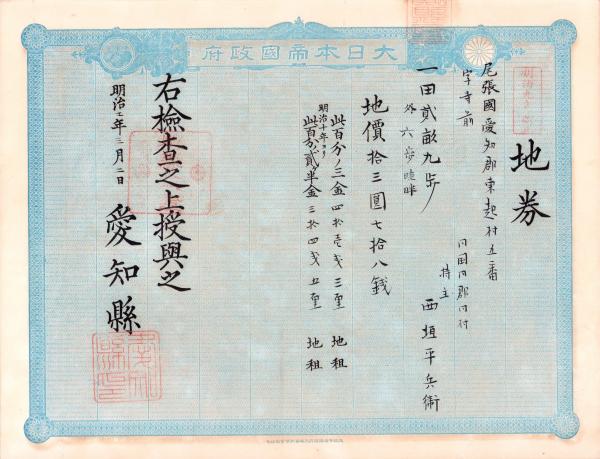 大日本帝國政府
地券
尾張國愛知郡東起村五番
字寺前
同国同郡同村
持主 西垣平兵衛
一田貳畝九歩
外六歩畦畔
地價拾三圓七拾八銭
此百分ノ三金四拾壱戔三厘 地租
明治十年ヨリ
此百分ノ貳半金三拾四戔五厘 地租
右檢査之上授與之
明治十二年三月二日
愛知縣